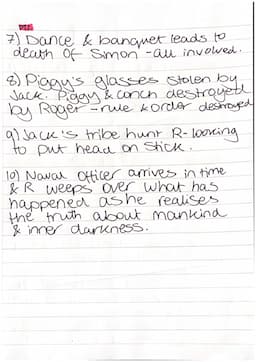 7) Dance & banquet leads to
death of Simon - all involved.
8) Piggy's glasses stolen by
Jack. Piggy & conch destroyed
by Roger - rule & order destroyed
9) Jack's tribe hunt R - looking
to put head on stick.
10) Naval officer arrives in time
& R weeps over what has
happened as he realises
the truth about mankind
& inner darkness.